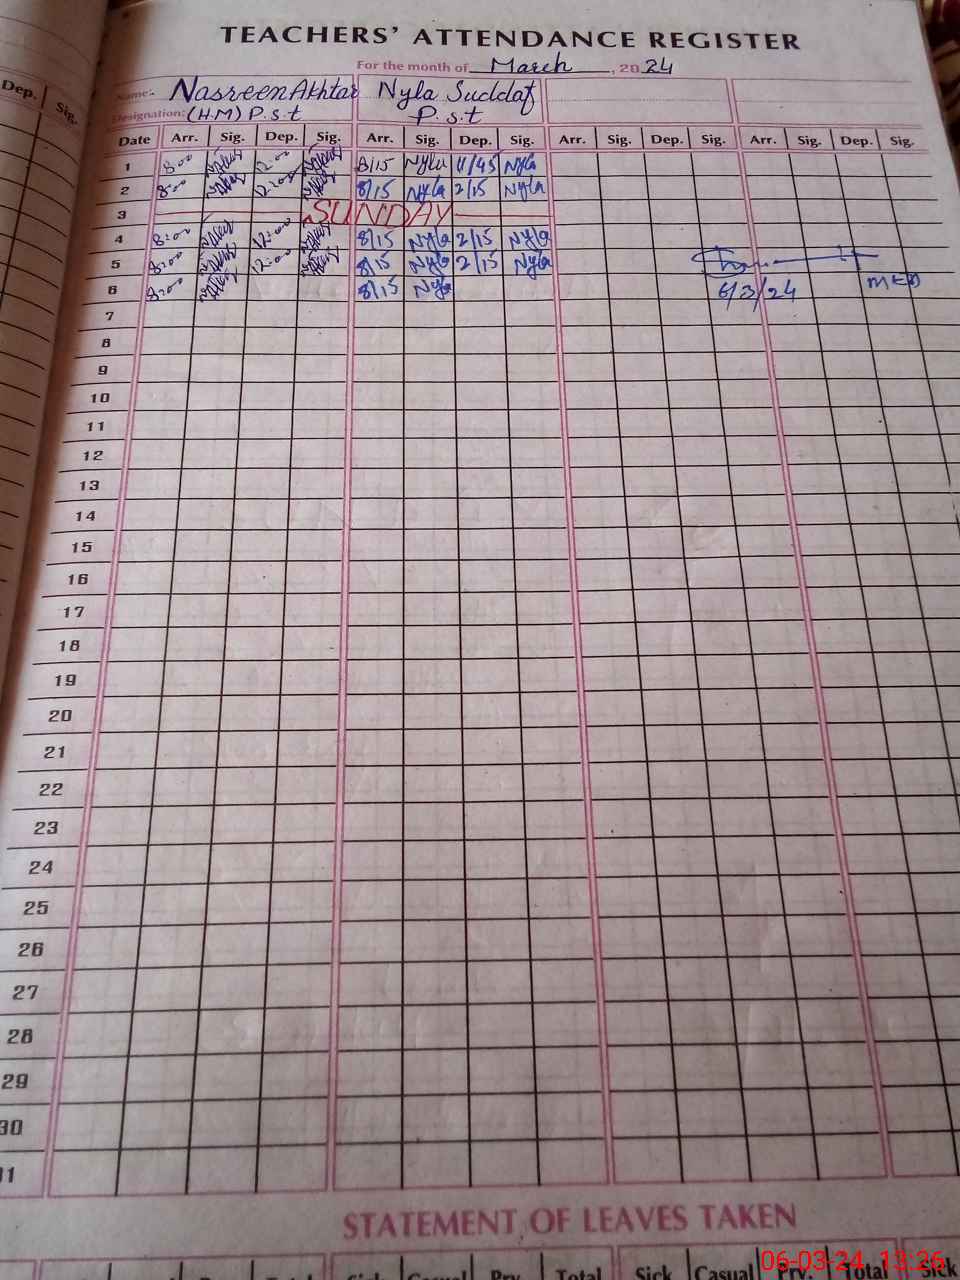 TEACHERS' ATTENDANCE REGISTER
For the month of March, 2024
Dep. Sig.
Name:- Nasreen Akhtar Nyla Suddaf
Designation: (H.M) P.s.t P.s.t
Date Arr. Sig. Dep. Sig. Arr. Sig. Dep. Sig. Arr. Sig. Dep. Sig. Arr. Sig. Dep. Sig.
1 8:00 12:00 8/15 Nyla 11/45 Nyla
2 8:00 12:00 8/15 Nyla 2/15 Nyla
3 SUNDAY
4 8:00 12:00 8/15 Nyla 2/15 Nyla
5 8:00 12:00 8/15 Nyla 2/15 Nyla
6 8:00 8/15 Nyla 6/3/24
7
8
9
10
11
12
13
14
15
16
17
18
19
20
21
22
23
24
25
26
27
28
29
30
31
STATEMENT OF LEAVES TAKEN
Total Sick Casual Prv. Total Sick
06-03-24 13:26